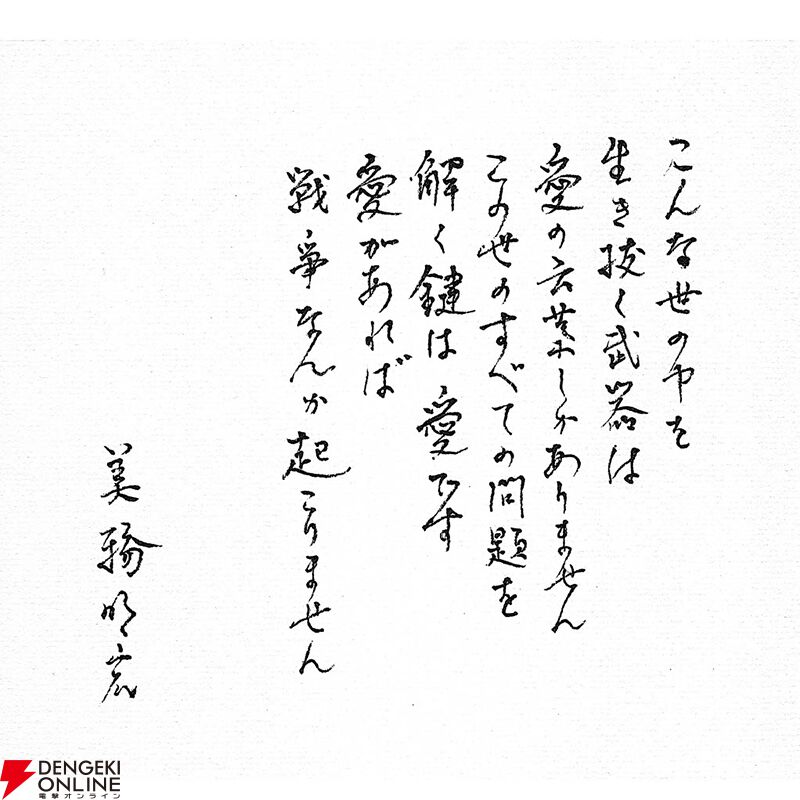 こんな世の中を
生き抜く武器は
愛の言葉しかありません
この世のすべての問題を
解く鍵は愛です
愛があれば
戦争なんか起こりません
美輪明宏
DENGEKI
ONLINE
電撃オンライン